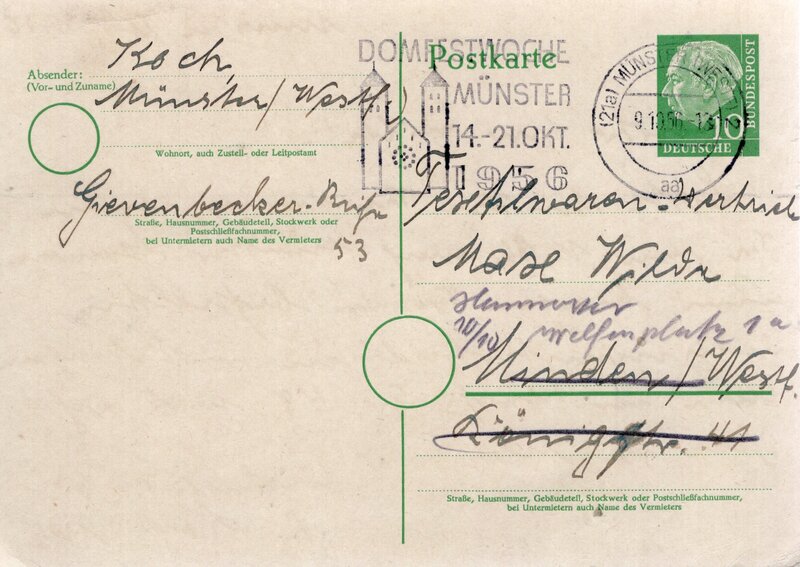 Absender:
(Vor- und Zuname)
Koch,
Münster/Westf.
Wohnort, auch Zustell- oder Leitpostamt
Gievenbecker-
Straße, Hausnummer, Gebäudeteil, Stockwerk oder
Postschließfachnummer,
bei Untermietern auch Name des Vermieters
53
DOMFESTWOCHE
MÜNSTER
14.-21.OKT.
1956
Postkarte
(21a) MÜNSTER (WESTF)
9.10.56
aa
10
DEUTSCHE
BUNDESPOST
Max Wilde
Hannover
10/10 Welfenplatz 1a
Minden/Westf.
Königstr. 41
Straße, Hausnummer, Gebäudeteil, Stockwerk oder Postschließfachnummer,
bei Untermietern auch Name des Vermieters